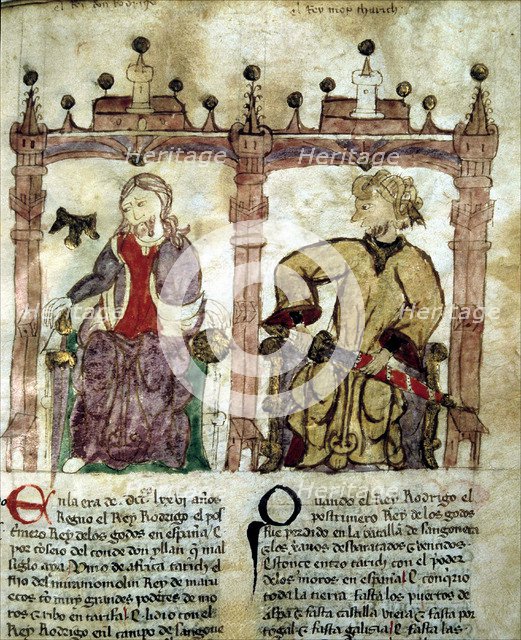 el Rey don Rodrigo
el Rey mop tharich
Heritage
Heritage
Heritage
Heritage
Heritage
Heritage
Enla era de. Dcc. Lxxvi años
Regno el Rey Rodrigo el pos
trimero Rey de los godos en españa. E
por cosejo del conde don yllan q̃ mal
siglo aya. Vino de africa tarich el
fijo del miramomolin Rey de maru
ecos cō muy grandes poderes de mo
ros & ribo en tarifa. E lidio con el
Rey Rodrigo enl campo de sangone
Quando el Rey Rodrigo el
postrimero Rey de los godos
fue perdido en la batalla de sangonera
& los xanos desbaratados & vençidos
Estonce entro tarich con el poder
de los moros en españa. E conq̃rio
toda la tierra fasta los puertos de
aspa & fasta castilla vieja & fasta por
togal & fasta galisia. E fasta las